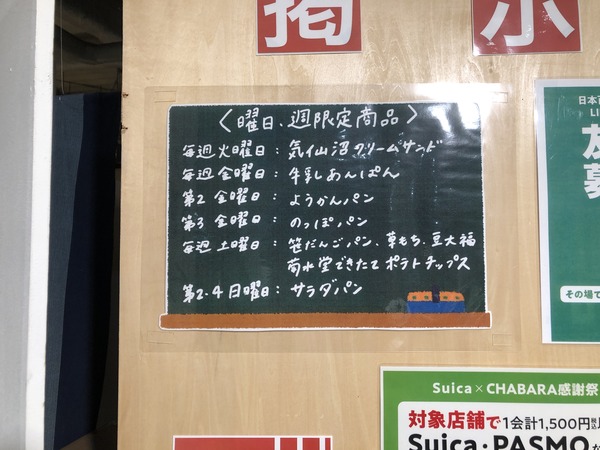 掲示
〈曜日、週限定商品〉
毎週火曜日：気仙沼クリームサンド
毎週金曜日：牛乳あんぱん
第2金曜日：ようかんパン
第3金曜日：のっぽパン
毎週土曜日：笹だんごパン、草もち、豆大福
菊水堂できたてポテトチップス
第2・4日曜日：サラダパン
日本百
LI
友
募
その場で
Suica×CHABARA感謝祭
対象店舗で1会計1,500円
Suica・PASMO